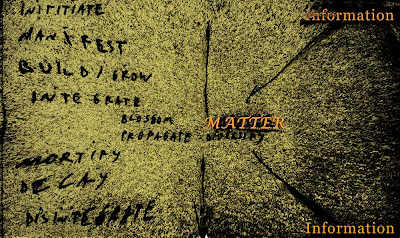 INITITIATE
Information
MANIFEST
BUILD/GROW
INTEGRATE
BLOSSOM
MATTER
PROPAGATE -
MORTIFY
DECAY
DISINTEGRATE
Information